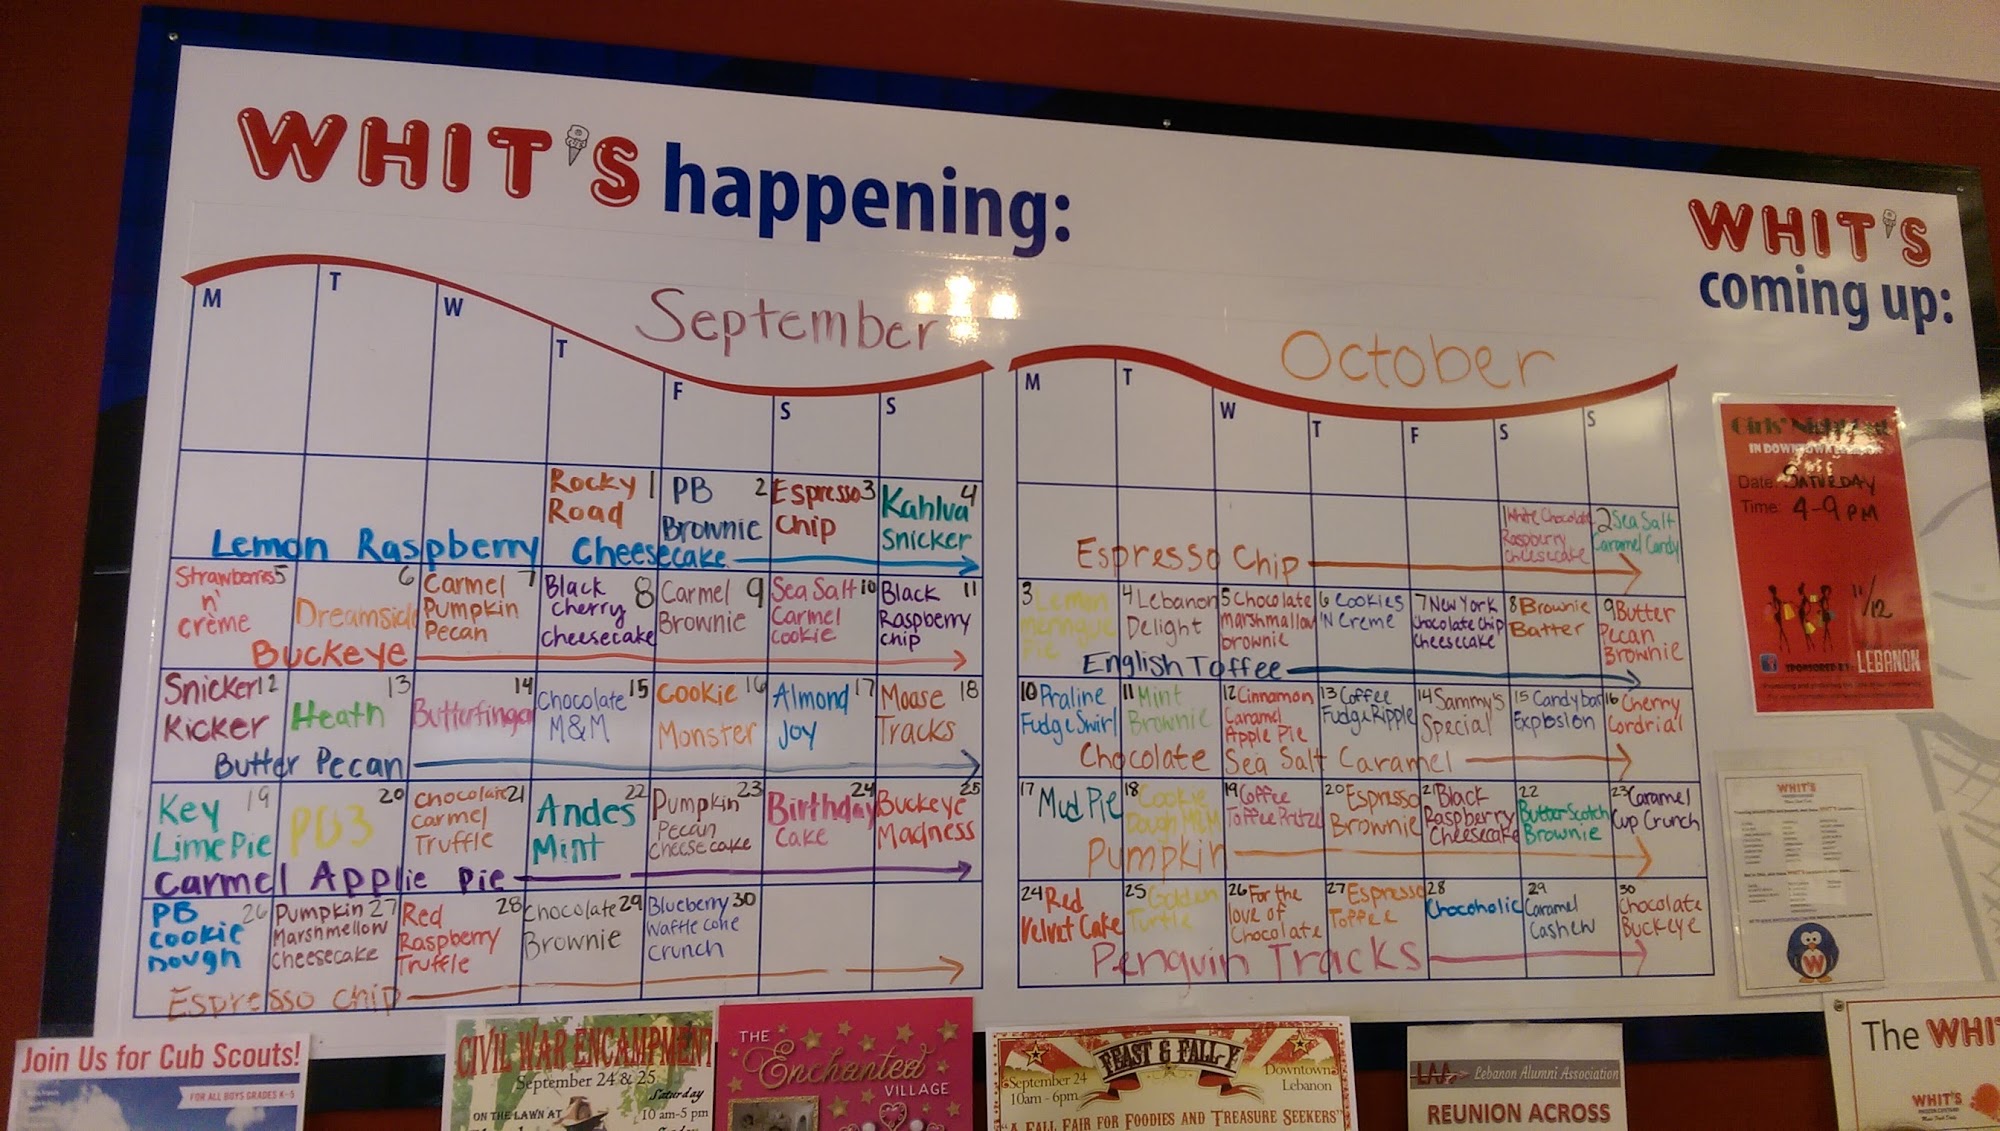 WHIT'S happening:
WHIT'S
coming up:
September
M T W T F S S
Rocky 1
Road
PB 2
Brownie
Espresso 3
Chip
Kahlua 4
Snicker
Lemon Raspberry Cheesecake
Strawberries 5
n'
crème
6
Dreamside
Carmel 7
Pumpkin
Pecan
Black 8
cherry
cheesecake
Carmel 9
Brownie
Sea Salt 10
Carmel
cookie
Black 11
Raspberry
chip
Buckeye
Snicker 12
Kicker
13
Heath
14
Butterfinger
Chocolate 15
M&M
Cookie 16
Monster
Almond 17
Joy
Moose 18
Tracks
Butter Pecan
Key 19
Lime Pie
20
PB3
Chocolate 21
Carmel
Truffle
Andes 22
Mint
Pumpkin 23
Pecan
cheesecake
Birthday 24
Cake
Buckeye 25
Madness
Carmel Applie Pie
PB 26
Cookie
Dough
Pumpkin 27
Marshmellow
cheesecake
Red 28
Raspberry
Truffle
Chocolate 29
Brownie
Blueberry 30
Waffle cone
Crunch
Espresso chip
October
M T W T F S S
1 White Chocolate
Raspberry
Cheesecake
2 Sea Salt
Caramel Candy
Espresso Chip
3 Lemon
meringue
Pie
4 Lebanon
Delight
5 Chocolate
marshmallow
brownie
6 Cookies
'N Creme
7 New York
Chocolate Chip
Cheesecake
8 Brownie
Batter
9 Butter
Pecan
Brownie
English Toffee
10 Praline
Fudge Swirl
11 Mint
Brownie
12 Cinnamon
Caramel
Apple Pie
13 Coffee
Fudge Ripple
14 Sammy's
Special
15 Candy bar
Explosion
16 Cherry
Cordrial
Chocolate Sea Salt Caramel
17 Mud Pie
18 Cookie
Dough M&M
19 Coffee
Toffee Pretzel
20 Espresso
Brownie
21 Black
Raspberry
Cheesecake
22
ButterScotch
Brownie
23 Caramel
Cup Crunch
Pumpkin
24 Red
Velvet Cake
25 Golden
Turtle
26 For the
love of
Chocolate
27 Espresso
Toffee
28
Chocoholic
29
Caramel
Cashew
30
Chocolate
Buckeye
Penguin Tracks
Girls' Night Out
IN DOWNTOWN LEBANON
Date: SATURDAY
Time: 4-9 PM
11/12
SPONSORED BY: LEBANON
WHIT'S
W
Join Us for Cub Scouts!
FOR ALL BOYS GRADES K-5
CIVIL WAR ENCAMPMENT
September 24 & 25
Saturday
ON THE LAWN AT 10 am-5 pm
THE
Enchanted
VILLAGE
FEAST & FALL-Y
September 24
10am - 6pm
Downtown
Lebanon
"A FALL FAIR FOR FOODIES AND TREASURE SEEKERS"
LAA Lebanon Alumni Association
REUNION ACROSS
The WHI
WHIT'S